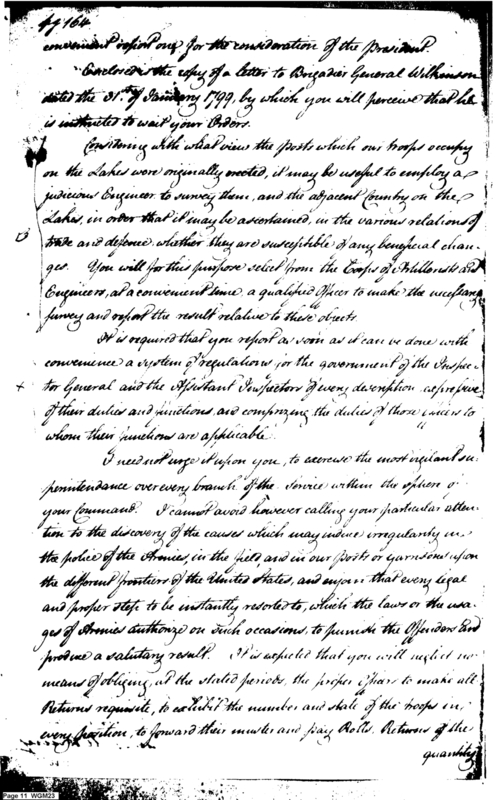 164
convenient report one for the consideration of the President.
Enclosed is the copy of a letter to Brigadier General Wilkinson
dated the 31st of January 1799, by which you will perceive that he
is instructed to wait your Orders.
Considering with what view the posts which our troops occupy
on the Lakes were originally erected, it may be useful to employ a
judicious Engineer to survey them, and the adjacent Country on the
Lakes, in order that it may be ascertained, in the various relations of
trade and defence, whether they are susceptible of any beneficial chan-
ges. You will for this purpose select from the Corps of Artillerists and
Engineers, at a convenient time, a qualified Officer to make the necessary
survey and report the result relative to these objects.
It is required that you report as soon as it can be done with
convenience a system of regulations for the government of the Inspec-
tor General and the Assistant Inspectors of every description expressive
of their duties and functions, and comprizing the duties of those Officers to
whom their functions are applicable.
I need not urge it upon you, to exercise the most vigilant su-
perintendance over every branch of the service within the sphere of
your Command. I cannot avoid however calling your particular atten-
tion to the discovery of the causes which may induce irregularity in
the police of the Armies, in the field, and in our Posts or Garrisons upon
the different frontiers of the United States, and enjoin that every legal
and proper step to be instantly resorted to, which the laws or the usa-
ges of Armies authorize on such occasions, to punish the Offenders and
produce a salutary result. It is expected that you will neglect no
means of obliging, at the stated periods, the proper officers to make all
Returns requisite, to exhibit the number and state of the troops in
every position, to forward their muster and pay Rolls. Returns of the
quantity
Page 11 WGM23